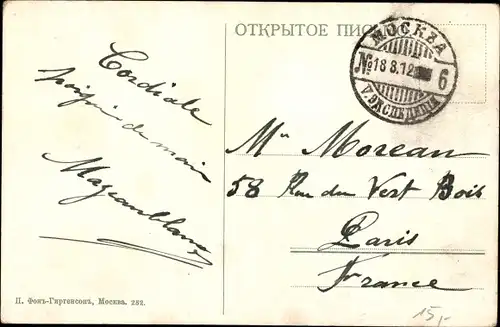 ОТКРЫТОЕ
МОСКВА
№ 18 8.12 6
V. ЭКСПЕДИЦІЯ
Cordiale
poignée de main
Mr Moreau
58 Rue du Vert Bois
Paris
France
П. Фонъ-Гиргенсонъ, Москва. 282.
15,-